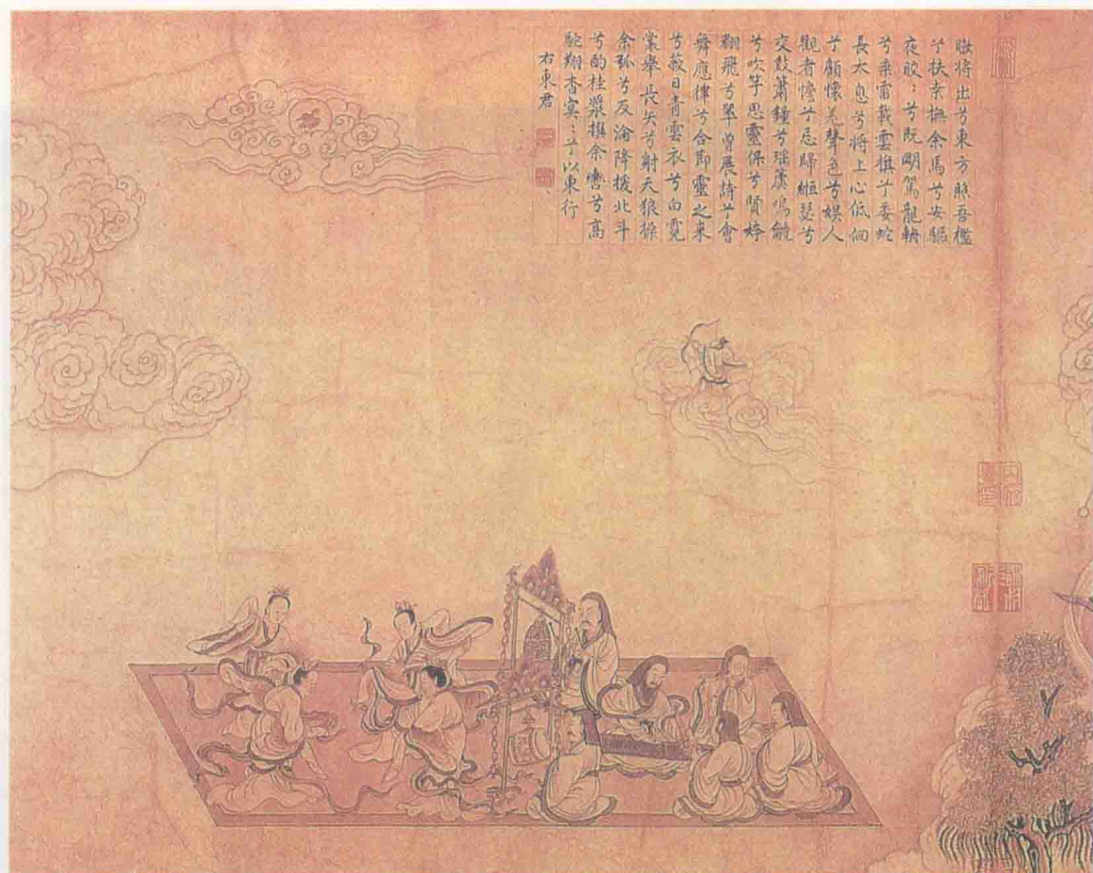 暾將出兮東方照吾檻
兮扶桑撫余馬兮安驅
夜晈：兮既明駕龍輈
兮乘雷載雲旗兮委蛇
長太息兮將上心低佪
兮顧懷羌聲色兮娛人
觀者憺兮忘歸緪瑟兮
交鼓簫鐘兮瑤簴鳴
兮吹竽思靈保兮賢姱
翾飛兮翠曾展詩兮會
舞應律兮合節靈之來
兮蔽日青雲衣兮白霓
裳舉長矢兮射天狼操
余弧兮反淪降援北斗
兮酌桂漿撰余轡兮高
駝翔杳冥：兮以東行
右東君